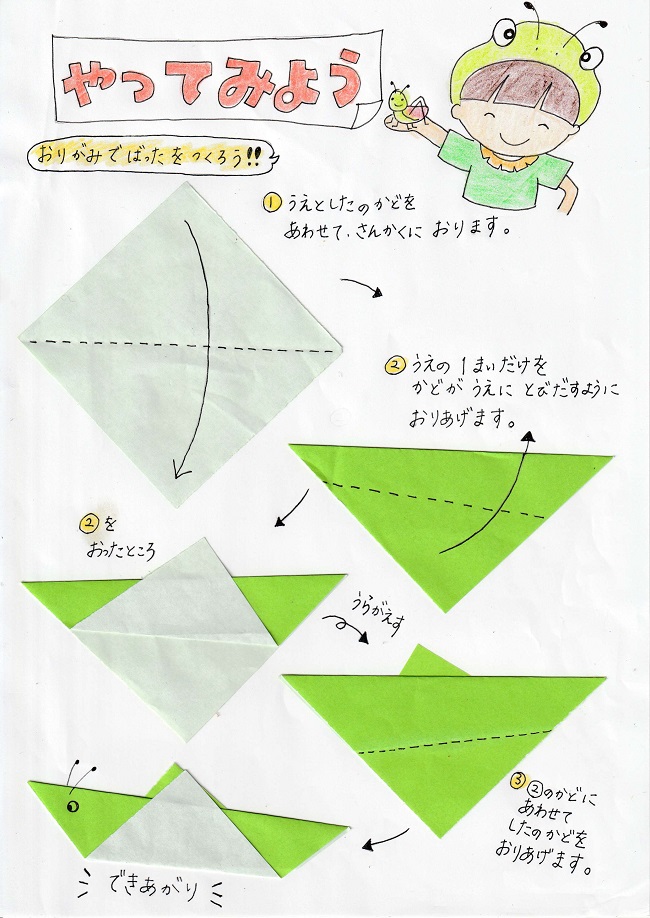 やってみよう
おりがみでばったをつくろう!!
① うえとしたのかどを
あわせて、さんかくに おります。
② うえの1まいだけを
かどが うえに とびだすように
おりあげます。
②を
おったところ
うらがえす
③ ②のかどに
あわせて
したのかどを
おりあげます。
できあがり